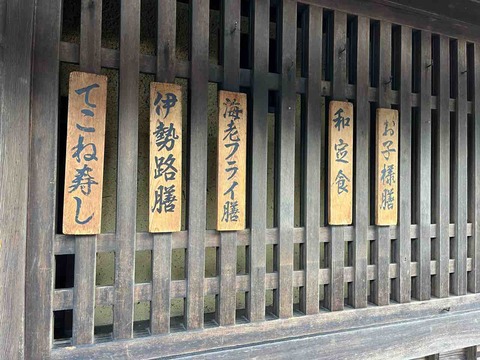 てこね寿し
伊勢路膳
海老フライ膳
和定食
お子様膳